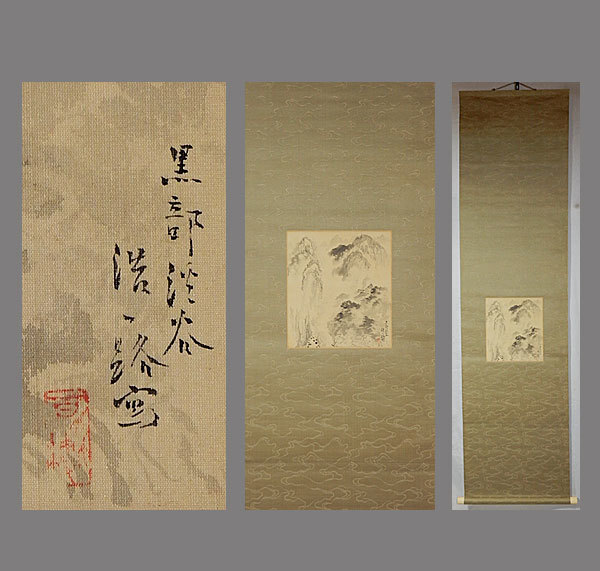 黒部渓谷
浩一路寫